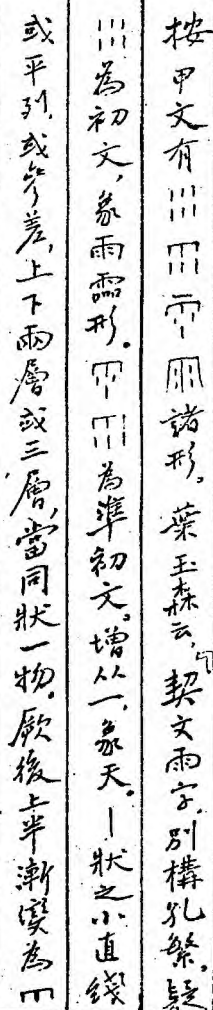 按甲文有諸形。葉玉森云，「契文雨字，別構孔繁。疑
為初文，象雨霝形。為準初文。增从一，象天。丨狀之小直綫
或平列，或參差，上下兩層或三層，當同狀一物。厥後上半漸變為